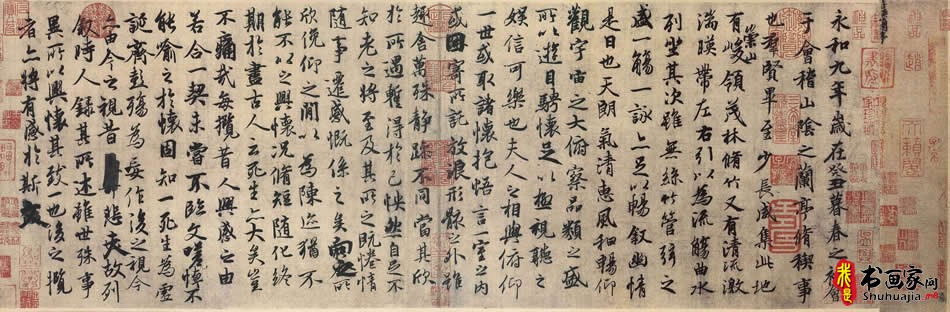 永和九年歲在癸丑暮春之初會
于會稽山陰之蘭亭脩稧事
也羣賢畢至少長咸集此地
有崇山峻領茂林脩竹又有清流激
湍暎帶左右引以為流觴曲水
列坐其次雖無絲竹管弦之
盛一觴一詠亦足以暢叙幽情
是日也天朗氣清惠風和暢仰
觀宇宙之大俯察品類之盛
所以遊目騁懷足以極視聽之
娛信可樂也夫人之相與俯仰
一世或取諸懷抱悟言一室之內
或因寄所託放浪形骸之外雖
趣舍萬殊靜躁不同當其欣
於所遇蹔得於己怏然自足不
知老之將至及其所之既惓情
隨事遷感慨係之矣向之所
欣俛仰之閒以為陳迹猶不
能不以之興懷況脩短隨化終
期於盡古人云死生亦大矣豈
不痛哉每攬昔人興感之由
若合一契未嘗不臨文嗟悼不
能喻之於懷固知一死生為虛
誕齊彭殤為妄作後之視今
亦由今之視昔悲夫故列
敘時人錄其所述雖世殊事
異所以興懷其致一也後之攬
者亦將有感於斯文
我是书画家网
Shuhuajia.net